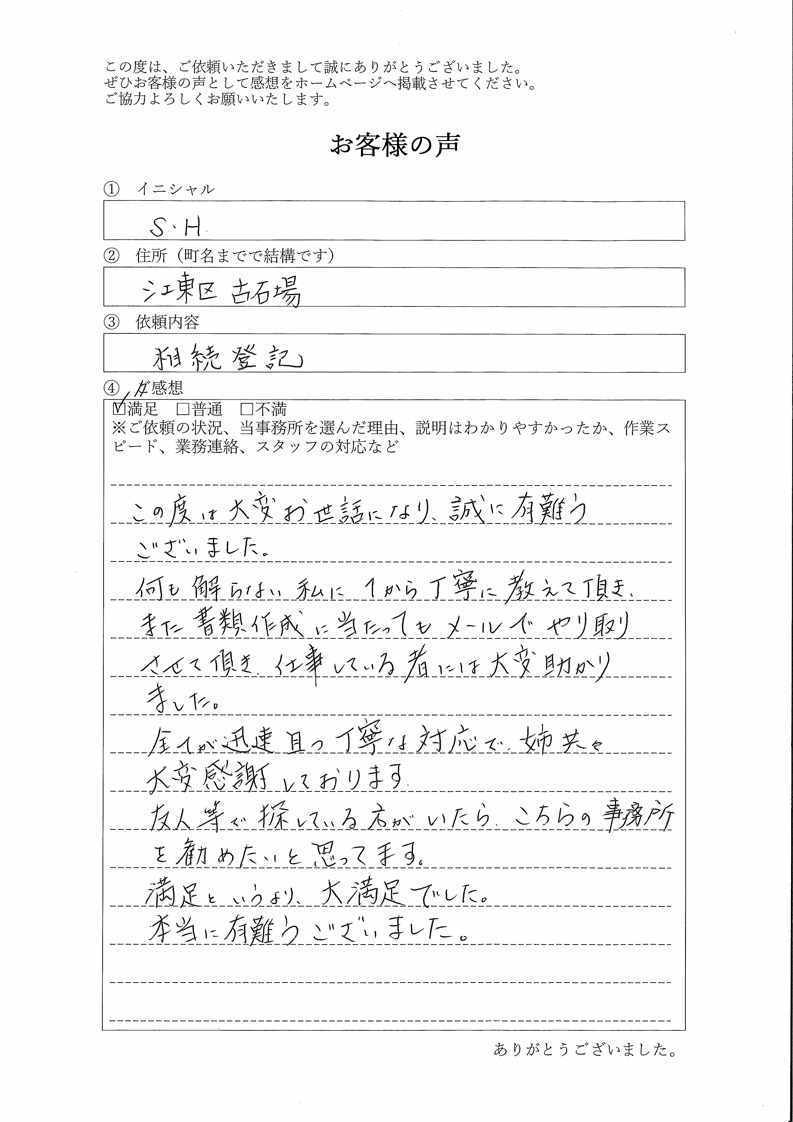 この度は、ご依頼いただきまして誠にありがとうございました。
ぜひお客様の声として感想をホームページへ掲載させてください。
ご協力よろしくお願いいたします。
お客様の声
① イニシャル
S・H
② 住所（町名までで結構です）
江東区 古石場
③ 依頼内容
相続登記
④ ご感想
☑満足 □普通 □不満
※ご依頼の状況、当事務所を選んだ理由、説明はわかりやすかったか、作業ス
ピード、業務連絡、スタッフの対応など
この度は大変お世話になり、誠に有難う
ございました。
何も解らない私に1から丁寧に教えて頂き、
また書類作成に当たってもメールでやり取り
させて頂き、仕事している者には大変助かり
ました。
全てが迅速且つ丁寧な対応で、姉共々
大変感謝しております。
友人等で探している方がいたら、こちらの事務所
を勧めたいと思ってます。
満足というより、大満足でした。
本当に有難うございました。
ありがとうございました。